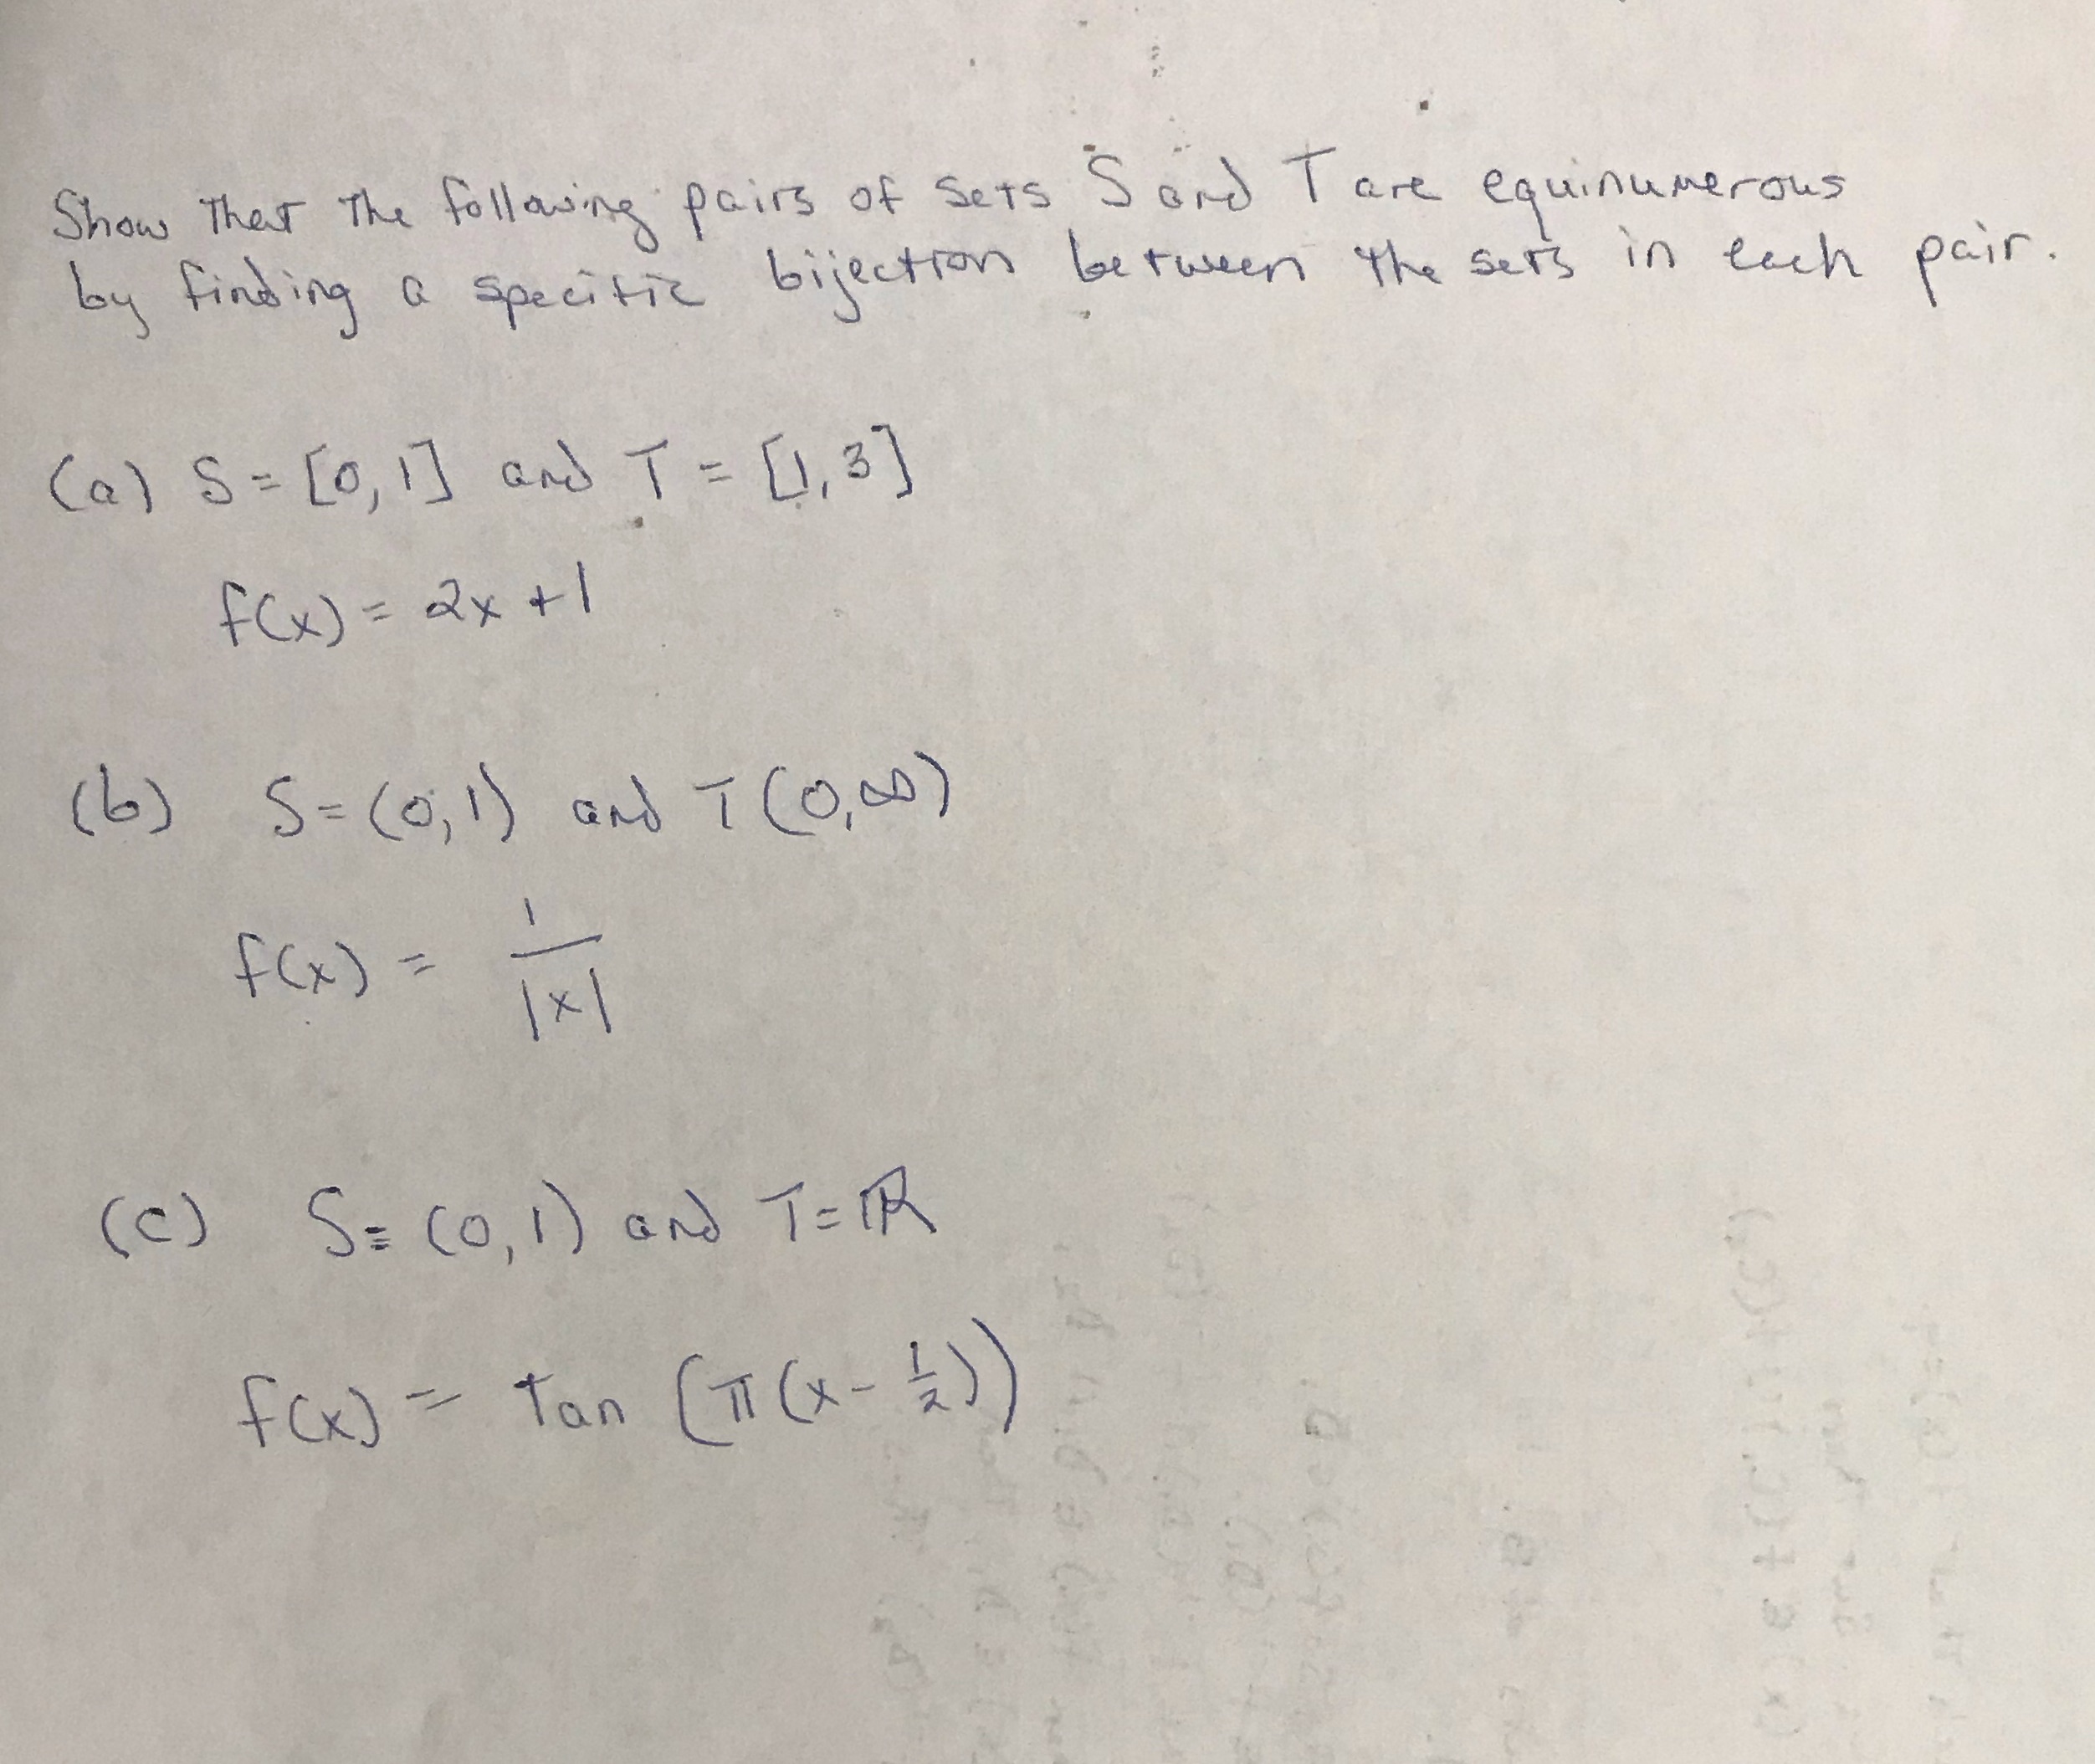 Show that the following pairs of sets S and T are equinumerous
by finding a specific bijection between the sets in each pair.
(a) S = [0, 1] and T = [1, 3]
f(x) = 2x + 1
(b) S = (0, 1) and T (0, ∞)
f(x) = 1/|x|
(c) S = (0, 1) and T = ℝ
f(x) = tan (π(x - 1/2))